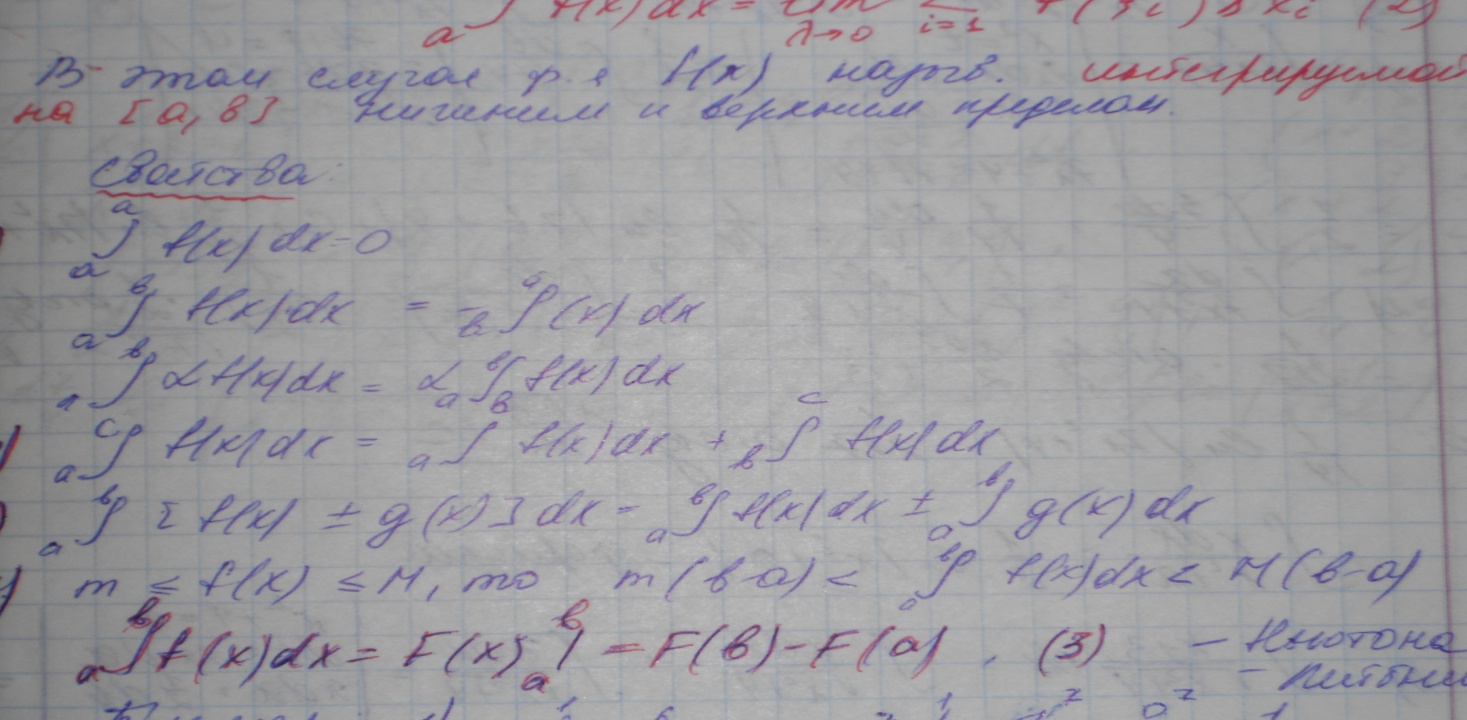 a∫ f(x)dx = lim Σ f(ξi)Δxi (2)
λ→0 i=1
В этом случае ф-я f(x) назыв. интегрируемой
на [a, b] нижним и верхним пределом.
Свойства:
a∫a f(x)dx=0
a∫b f(x)dx = -b∫a f(x)dx
a∫b αf(x)dx = αa∫b f(x)dx
a∫c f(x)dx = a∫b f(x)dx + b∫c f(x)dx
a∫b [f(x) ± g(x)]dx = a∫b f(x)dx ± a∫b g(x)dx
m ≤ f(x) ≤ M, то m(b-a) < a∫b f(x)dx < M(b-a)
a∫b f(x)dx = F(x) a|b = F(b)-F(a). (3) – Ньютона